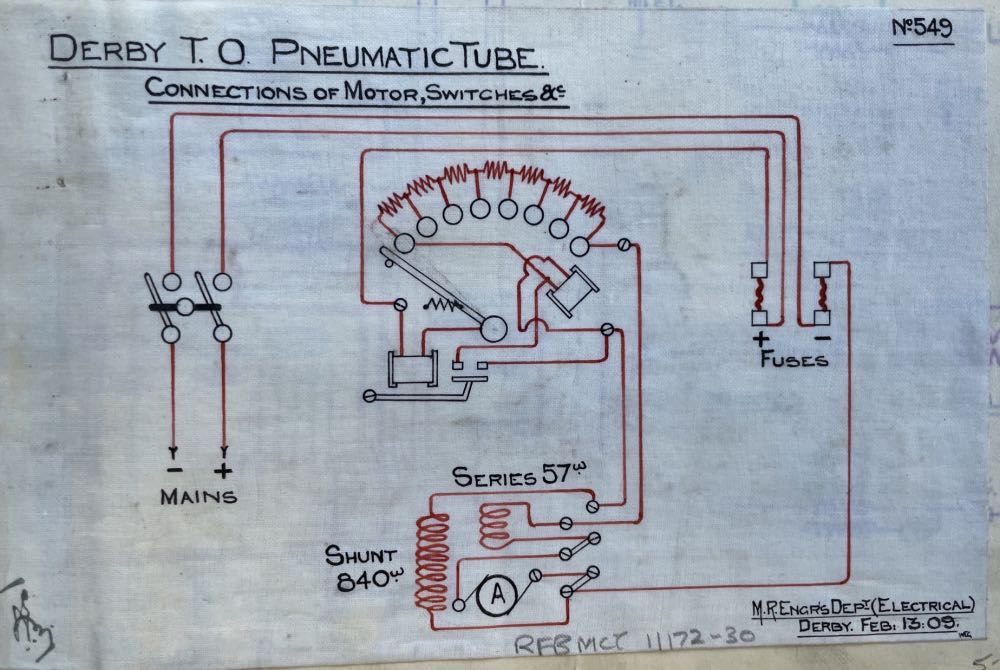 Nº549
DERBY T. O. PNEUMATIC TUBE.
CONNECTIONS OF MOTOR, SWITCHES &c
+ −
FUSES
− +
MAINS
SERIES 57ω
SHUNT
840ω
A
M.R. ENGR'S DEPT (ELECTRICAL)
DERBY. FEB: 13: 09.
RFB MCT 11172-30